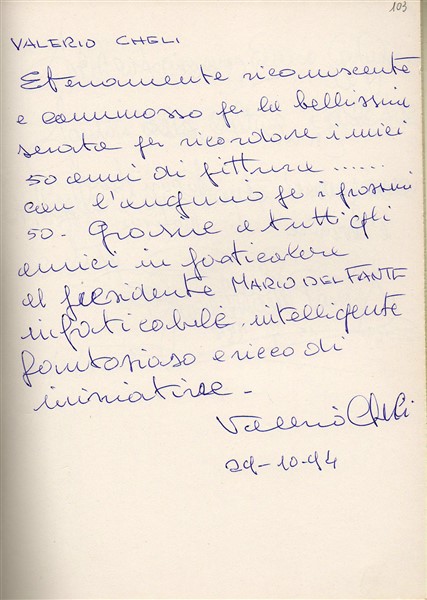 103
VALERIO CHELI
Eternamente riconoscente
e commosso per la bellissima
serata per ricordare i miei
50 anni di pittura ......
con l'augurio per i prossimi
50. Grazie a tutti gli
amici in particolare
al presidente MARIO DEL FANTE
infaticabile, intelligente
fantasioso e ricco di
iniziative.
Valerio Cheli
29-10-94